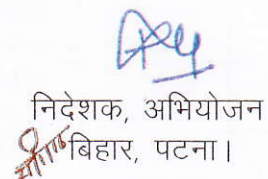 निदेशक, अभियोजन
बिहार, पटना।